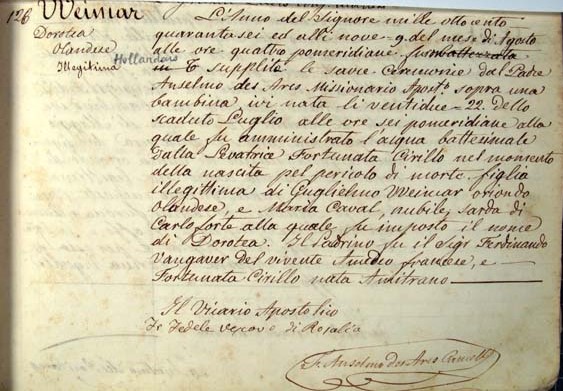 126 Weimar
Dorotea
Olandese
Illegitima
Hollandais
L'Anno del Signore mille otto cento
quaranta sei ed alli nove - 9 - del mese di Agosto
alle ore quattro pomeridiane fu battezzata
in supplito le sacre Cerimonie dal Padre
Anselmo des Arcs Missionario Apost.º sopra una
bambina, ivi nata li ventidue - 22. dello
scaduto Luglio alle ore sei pomeridiane alla
quale fu amministrato l'acqua battesimale
dalla Levatrice Fortunata Cirillo nel momento
della nascita pel pericolo di morte figlia
illegittima di Guglielmo Weimar oriondo
Olandese, e Maria Caval, nubile, Sarda di
Carlo forte alla quale fu imposto il nome
di Dorotea. Il Padrino fu il Sigr Ferdinando
Vangaver del vivente Amedeo francese, e
Fortunata Cirillo nata Amitrano
Il Vicario Apostolico
Fr Fedele vescovo di Rosalia
F. Anselmo des Arcs